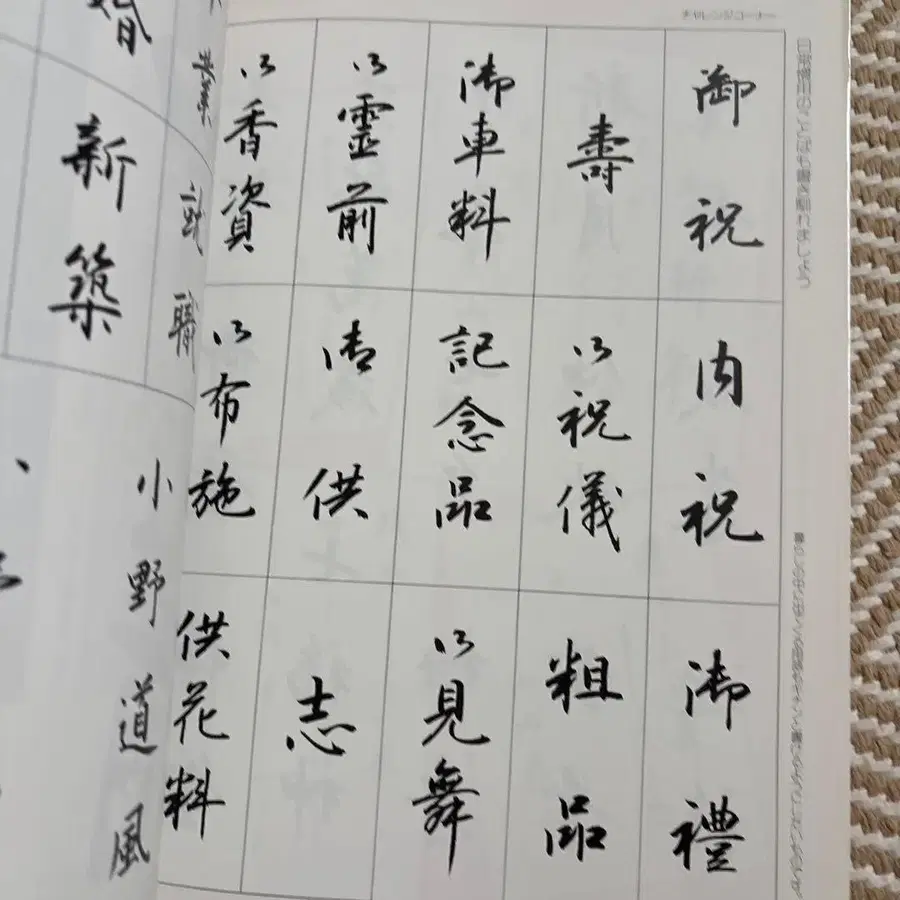 チャレンジコーナー
日常慣用のことばも書き馴れましょう
御祝
内祝
御禮
壽
御祝儀
粗品
御車料
記念品
御見舞
御靈前
御供
志
御香資
御布施
供花料
就職
新築
小野道風